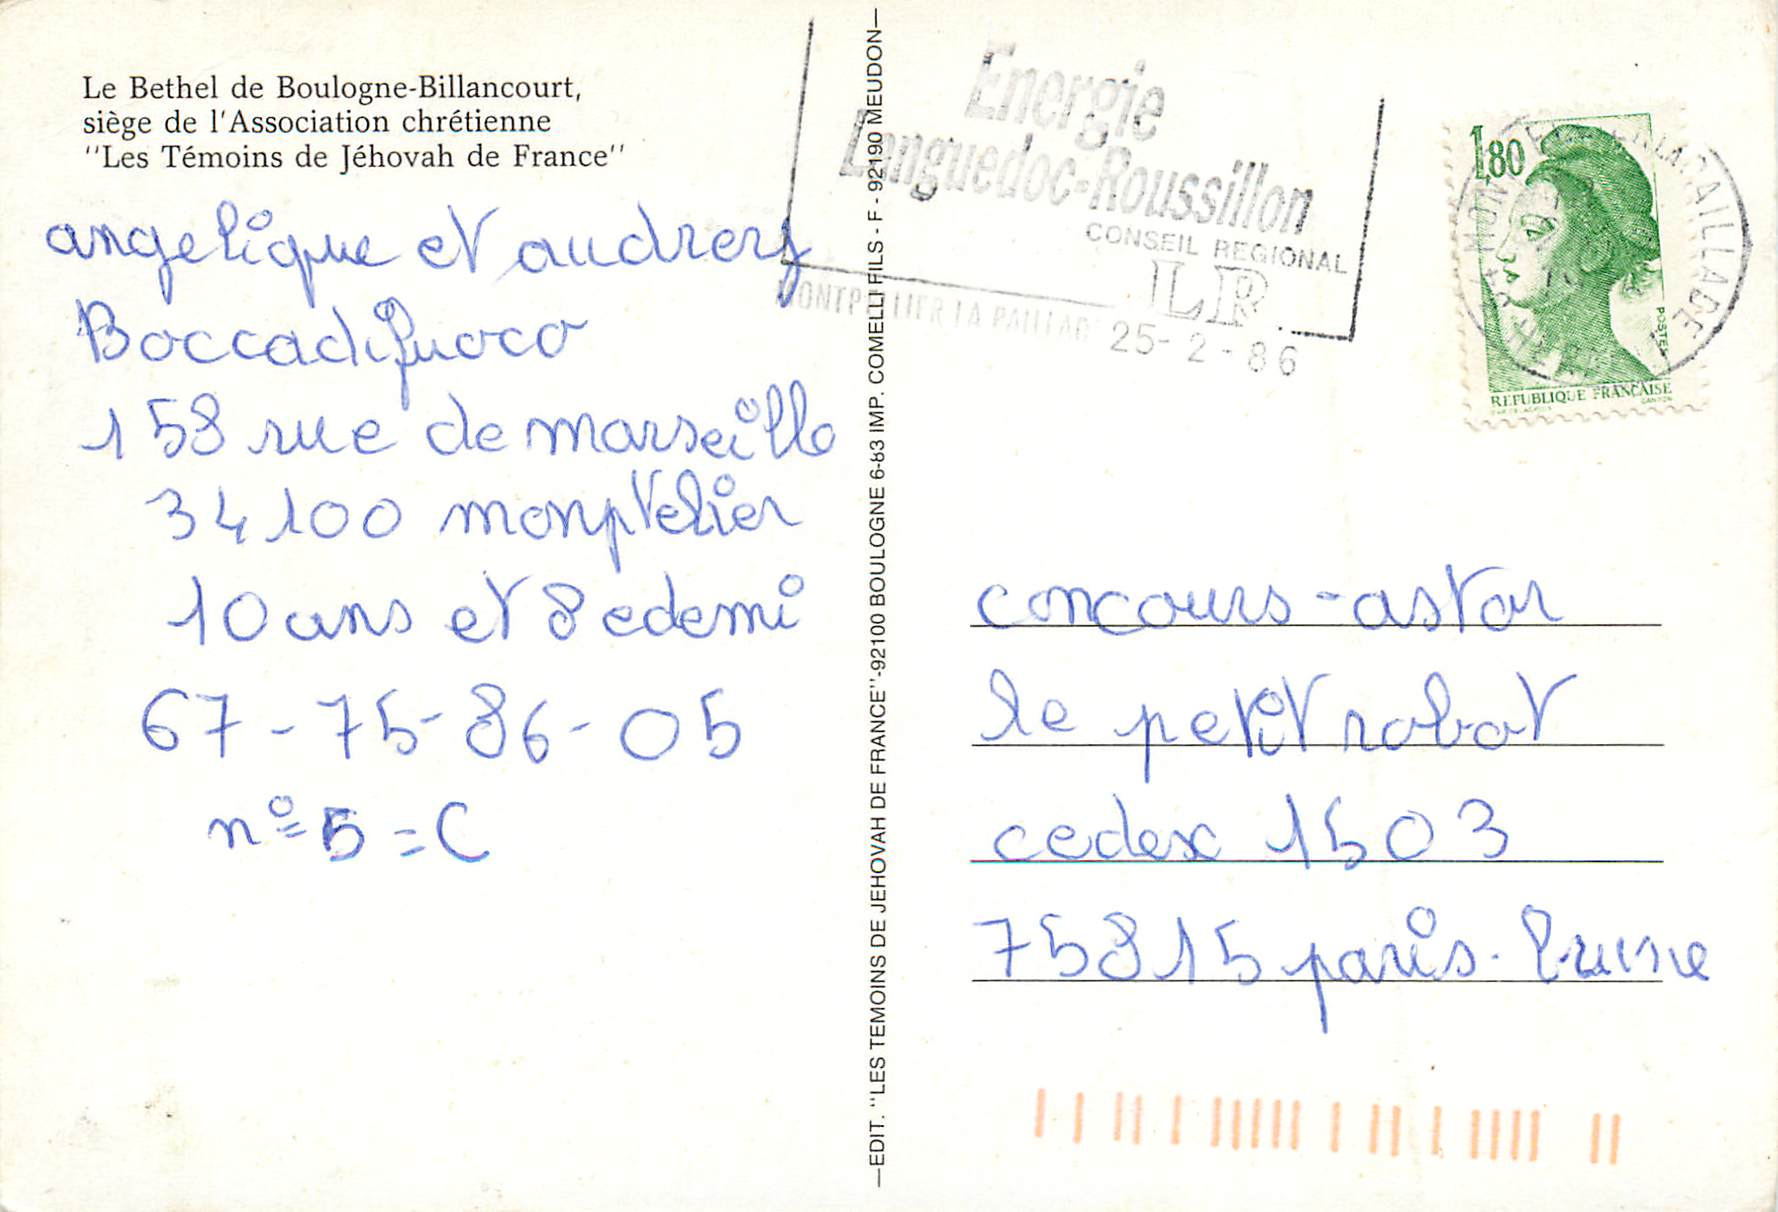 Le Bethel de Boulogne-Billancourt,
siège de l'Association chrétienne
"Les Témoins de Jéhovah de France"
angelique et audrery
Boccadifuoco
158 rue de marseille
34100 monptelier
10 ans et 8 edemi
67-75-86-05
n° = 5 = C
EDIT. "LES TEMOINS DE JEHOVAH DE FRANCE"-92100 BOULOGNE 6-83 IMP. COMELLI FILS - F - 92190 MEUDON
Energie
Languedoc-Roussillon
CONSEIL REGIONAL
LR
MONTPELLIER LA PAILLAD 25-2-86
1,80
POSTES
REPUBLIQUE FRANÇAISE
LA PAILLADE
concours-astor
le petit robot
cedex 1503
75815 paris.